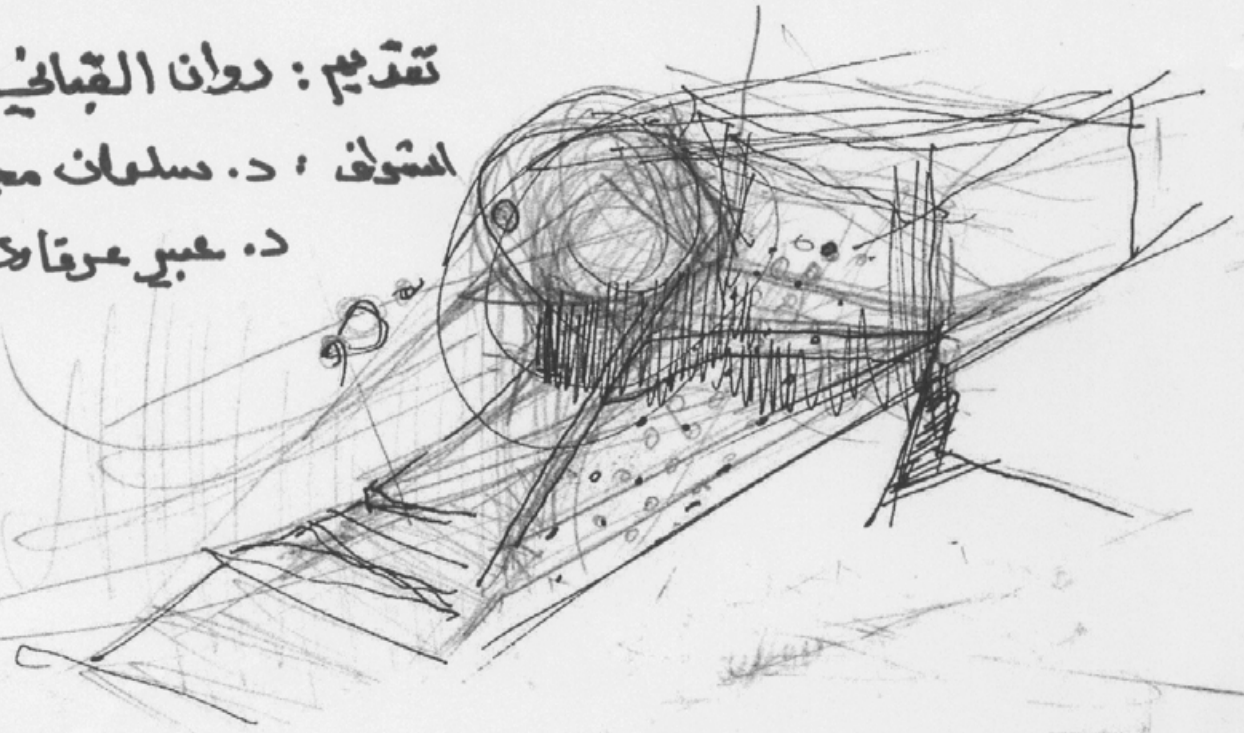 تقديم : روان القباني
اشراف : د. سلمان
د. عبير عرقاوي